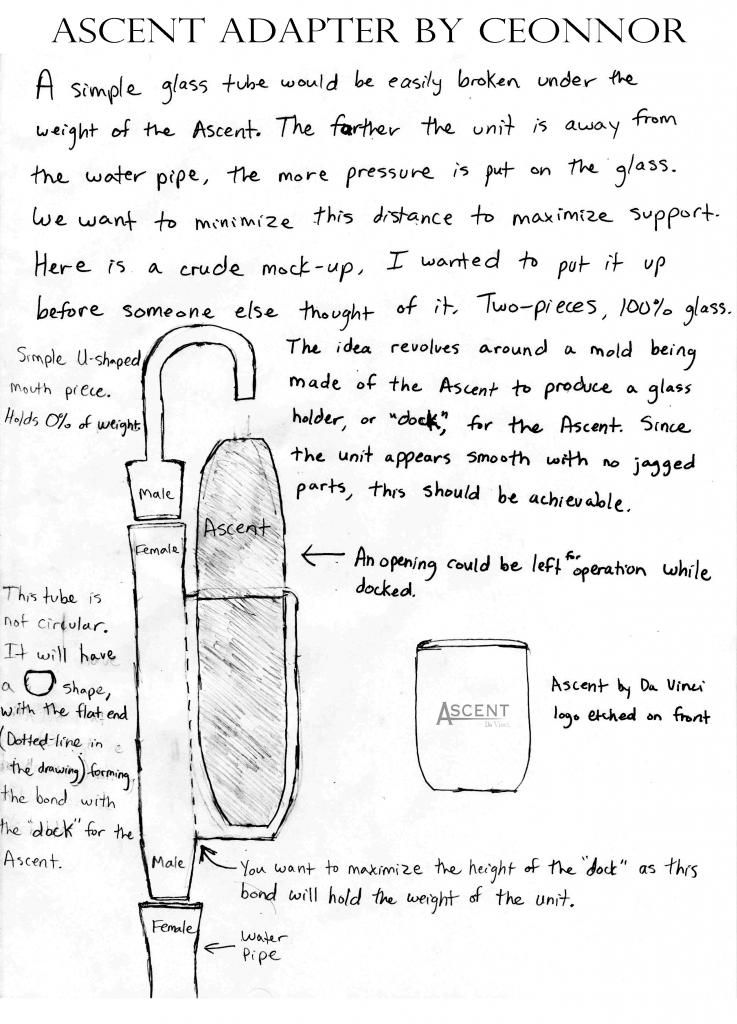 ASCENT ADAPTER BY CEONNOR
A simple glass tube would be easily broken under the
weight of the Ascent. The farther the unit is away from
the water pipe, the more pressure is put on the glass.
We want to minimize this distance to maximize support.
Here is a crude mock-up, I wanted to put it up
before someone else thought of it. Two-pieces, 100% glass.
The idea revolves around a mold being
made of the Ascent to produce a glass
holder, or "dock", for the Ascent. Since
the unit appears smooth with no jagged
parts, this should be achievable.
Simple U-shaped
mouth piece.
Holds 0% of weight.
Male
Female
Ascent
An opening could be left for operation while
docked.
This tube is
not circular.
It will have
a shape,
with the flat end
(Dotted-line in
the drawing) forming
the bond with
the "dock" for the
Ascent.
ASCENT
Da Vinci
Ascent by Da Vinci
logo etched on front
Male
You want to maximize the height of the "dock" as this
bond will hold the weight of the unit.
Female
Water
Pipe